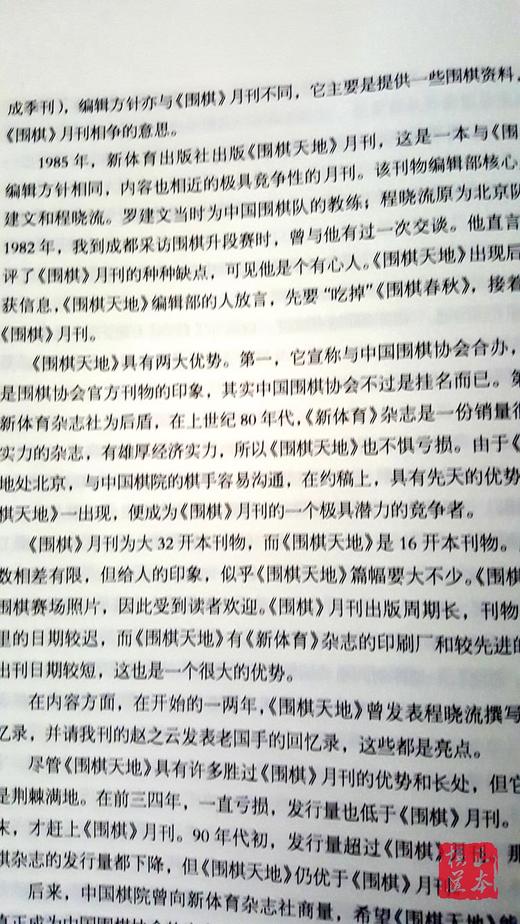 成季刊)，编辑方针亦与《围棋》月刊不同，它主要是提供一些围棋资料，
《围棋》月刊相争的意思。
1985年，新体育出版社出版《围棋天地》月刊，这是一本与《围
编辑方针相同，内容也相近的极具竞争性的月刊。该刊物编辑部核心
建文和程晓流。罗建文当时为中国围棋队的教练；程晓流原为北京队
1982年，我到成都采访围棋升段赛时，曾与他有过一次交谈。他直言
评了《围棋》月刊的种种缺点，可见他是个有心人。《围棋天地》出现后
获信息，《围棋天地》编辑部的人放言，先要“吃掉”《围棋春秋》，接着
《围棋》月刊。
《围棋天地》具有两大优势。第一，它宣称与中国围棋协会合办，
是围棋协会官方刊物的印象，其实中国围棋协会不过是挂名而已。第
新体育杂志社为后盾，在上世纪80年代，《新体育》杂志是一份销量很
实力的杂志，有雄厚经济实力，所以《围棋天地》也不惧亏损。由于《
地处北京，与中国棋院的棋手容易沟通，在约稿上，具有先天的优势
棋天地》一出现，便成为《围棋》月刊的一个极具潜力的竞争者。
《围棋》月刊为大32开本刊物，而《围棋天地》是16开本刊物。
数相差有限，但给人的印象，似乎《围棋天地》篇幅要大不少。《围棋
围棋赛场照片，因此受到读者欢迎。《围棋》月刊出版周期长，刊物
里的日期较迟，而《围棋天地》有《新体育》杂志的印刷厂和较先进的
出刊日期较短，这也是一个很大的优势。
在内容方面，在开始的一两年，《围棋天地》曾发表程晓流撰写
忆录，并请我刊的赵之云发表老国手的回忆录，这些都是亮点。
尽管《围棋天地》具有许多胜过《围棋》月刊的优势和长处，但它
是荆棘满地。在前三四年，一直亏损，发行量也低于《围棋》月刊。
末，才赶上《围棋》月刊。90年代初，发行量超过《围棋》月刊，那
棋杂志的发行量都下降，但《围棋天地》仍优于《围棋》月刊
后来，中国棋院曾向新体育杂志社商量，希望《围棋天地》
真正成为中国围棋协会的